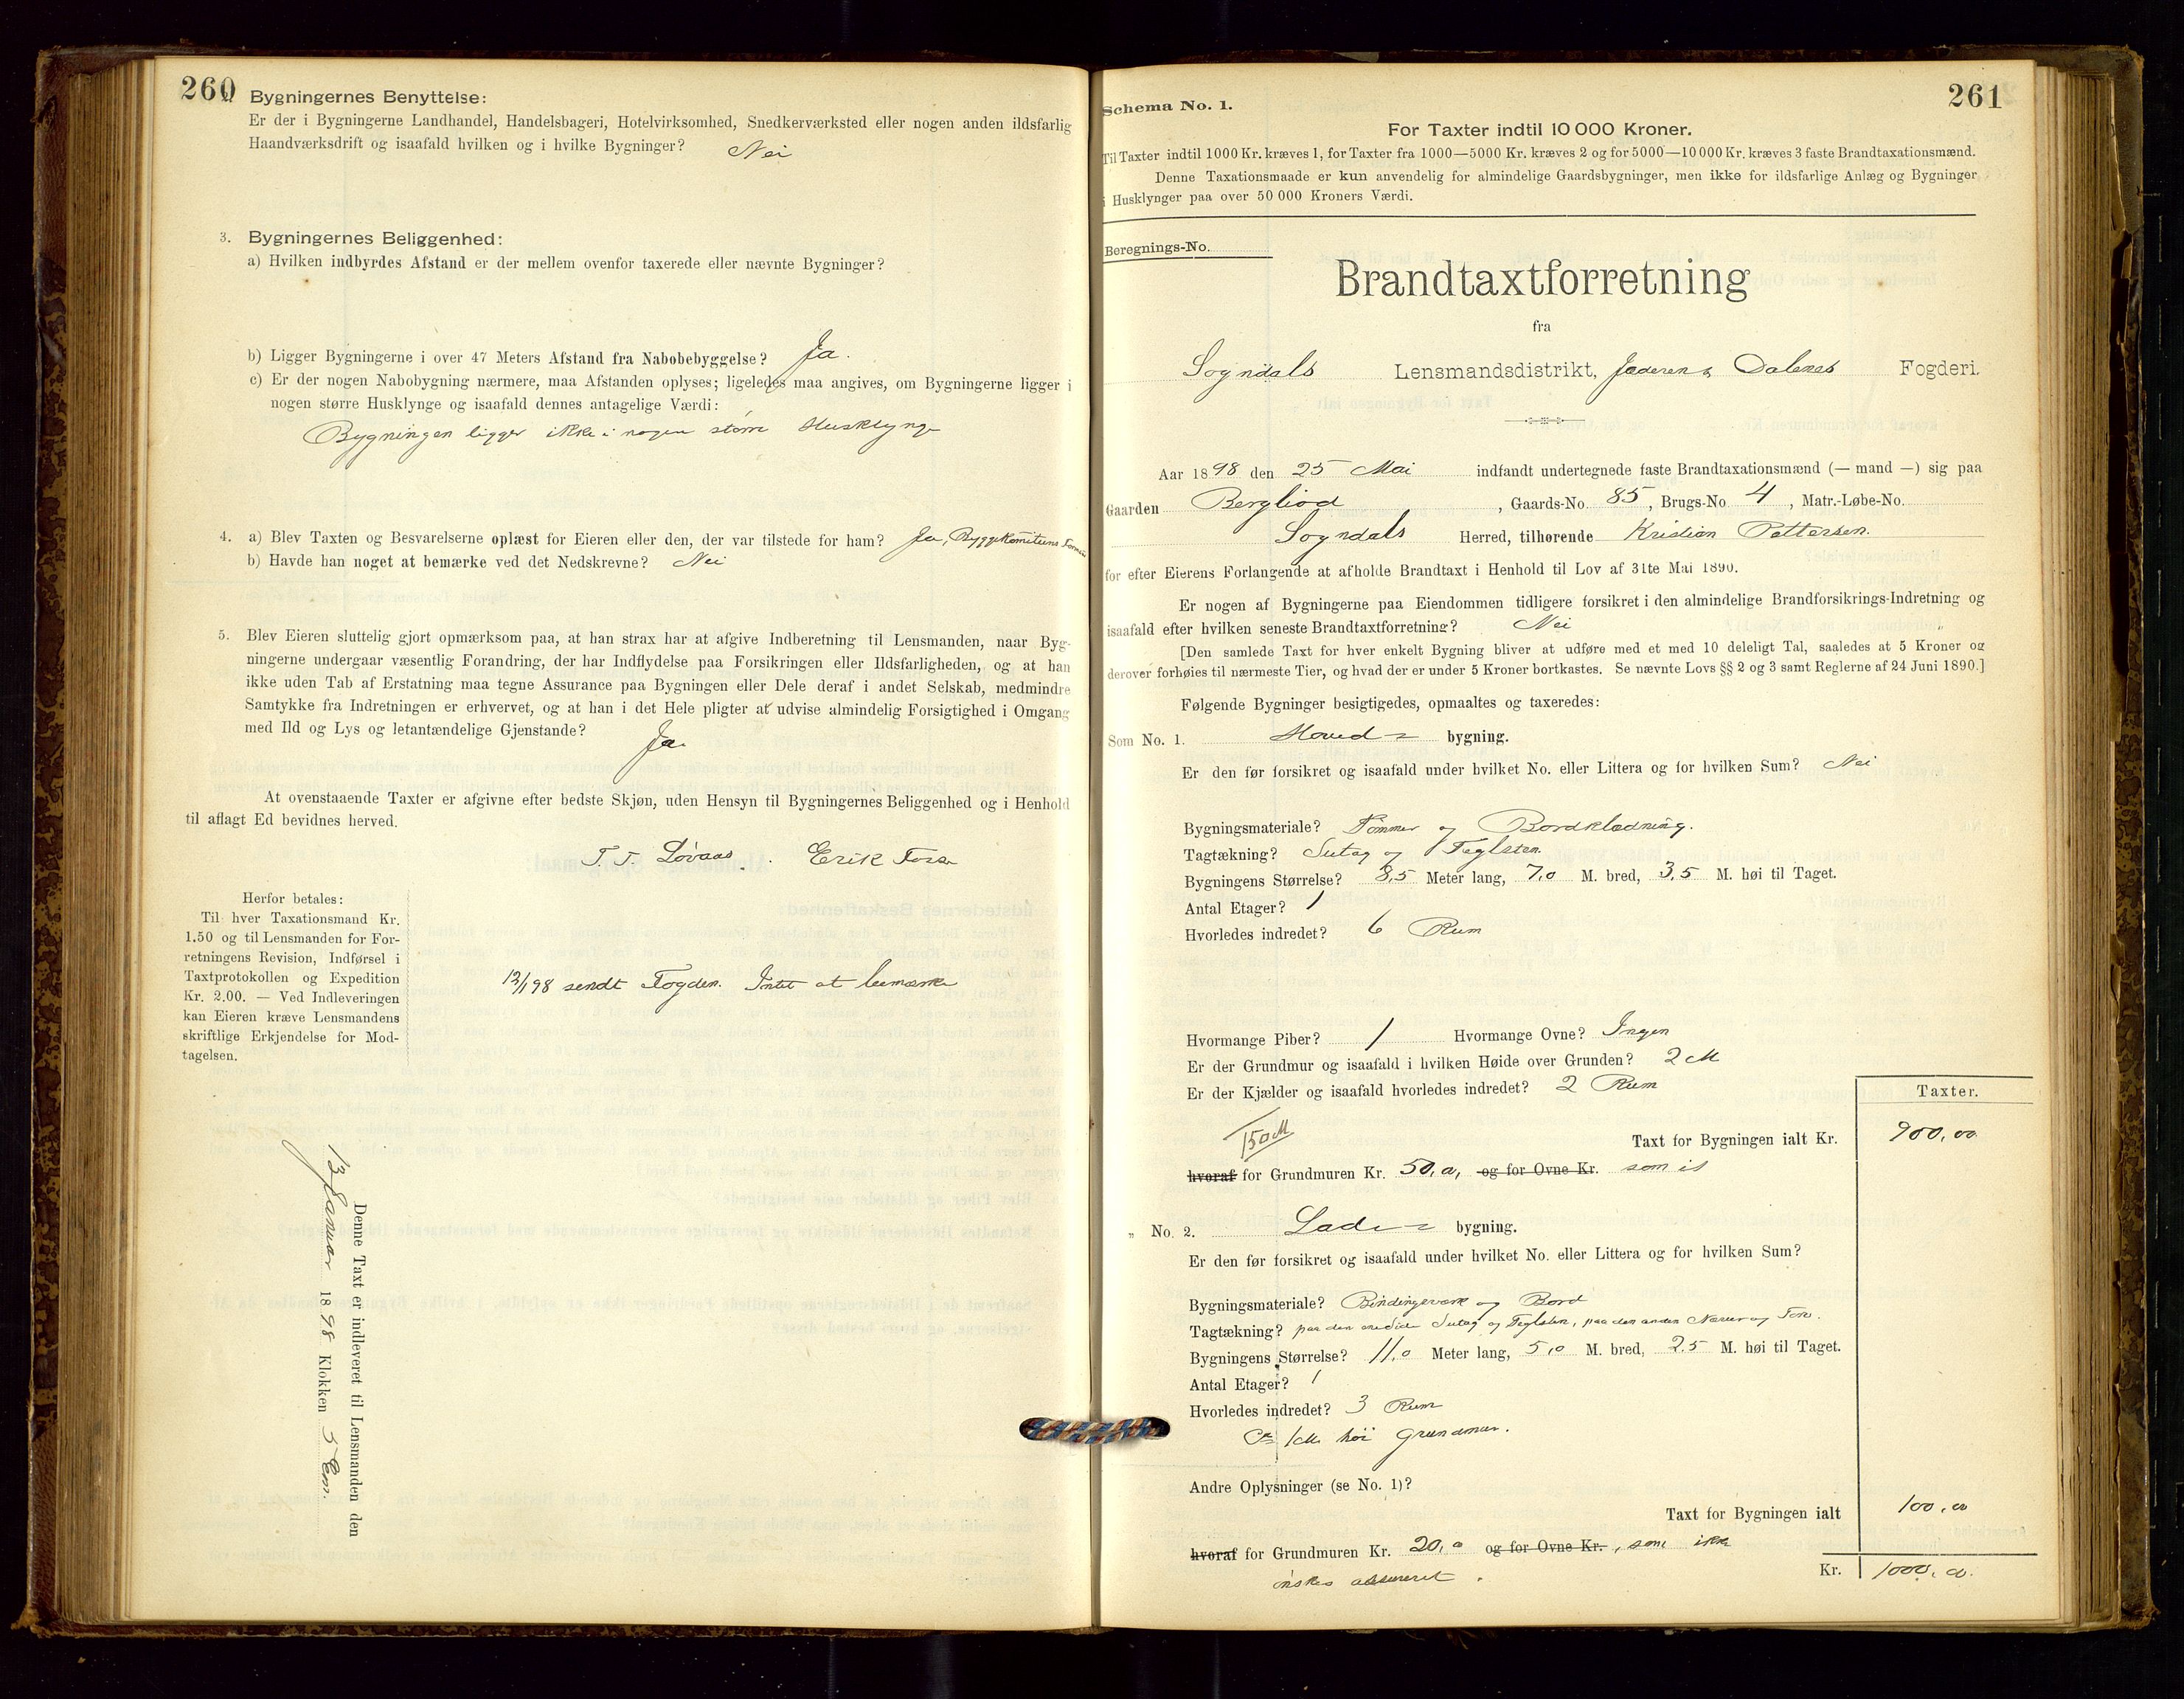 260
2. Bygningernes Benyttelse:
Er der i Bygningerne Landhandel, Handelsbageri, Hotelvirksomhed, Snedkerværksted eller nogen anden ildsfarlig
Haandværksdrift og isaafald hvilken og i hvilke Bygninger? Nei
3. Bygningernes Beliggenhed:
a) Hvilken indbyrdes Afstand er der mellem ovenfor taxerede eller nævnte Bygninger?
b) Ligger Bygningerne i over 47 Meters Afstand fra Nabobebyggelse? Ja.
c) Er der nogen Nabobygning nærmere, maa Afstanden oplyses; ligeledes maa angives, om Bygningerne ligger i
nogen større Husklynge og isaafald dennes antagelige Værdi:
Bygningen ligger ikke i nogen større Husklynge
4. a) Blev Taxten og Besvarelserne oplæst for Eieren eller den, der var tilstede for ham? Ja, Byggekomiteens
b) Havde han noget at bemærke ved det Nedskrevne? Nei
5. Blev Eieren sluttelig gjort opmærksom paa, at han strax har at afgive Indberetning til Lensmanden, naar Byg-
ningerne undergaar væsentlig Forandring, der har Indflydelse paa Forsikringen eller Ildsfarligheden, og at han
ikke uden Tab af Erstatning maa tegne Assurance paa Bygningen eller Dele deraf i andet Selskab, medmindre
Samtykke fra Indretningen er erhvervet, og at han i det Hele pligter at udvise almindelig Forsigtighed i Omgang
med Ild og Lys og letantændelige Gjenstande?
Ja.
At ovenstaaende Taxter er afgivne efter bedste Skjøn, uden Hensyn til Bygningernes Beliggenhed og i Henhold
til aflagt Ed bevidnes herved.
T. T. Løvaas. Erik
Herfor betales:
Til hver Taxationsmand Kr.
1.50 og til Lensmanden for For-
retningens Revision, Indførsel i
Taxtprotokollen og Expedition
Kr. 2.00. — Ved Indleveringen
kan Eieren kræve Lensmandens
skriftlige Erkjendelse for Mod-
tagelsen.
13/1 98 sendt Fogden. Intet at bemærke
Denne Taxt er indleveret til Lensmanden den
13 Januar 1898 Klokken 5 Em.
261
Schema No. 1.
For Taxter indtil 10 000 Kroner.
Til Taxter indtil 1000 Kr. kræves 1, for Taxter fra 1000—5000 Kr. kræves 2 og for 5000—10 000 Kr. kræves 3 faste Brandtaxationsmænd.
Denne Taxationsmaade er kun anvendelig for almindelige Gaardsbygninger, men ikke for ildsfarlige Anlæg og Bygninger
i Husklynger paa over 50 000 Kroners Værdi.
Beregnings-No.
Brandtaxtforretning
fra
Sogndals Lensmandsdistrikt, Jæderen & Dalenes Fogderi.
Aar 1898 den 25 Mai indfandt undertegnede faste Brandtaxationsmænd (— mand —) sig paa
Gaarden Bergliod, Gaards-No. 85, Brugs-No 4, Matr.-Løbe-No.
Sogndals Herred, tilhørende Kristian Pettersen.
for efter Eierens Forlangende at afholde Brandtaxt i Henhold til Lov af 31te Mai 1890.
Er nogen af Bygningerne paa Eiendommen tidligere forsikret i den almindelige Brandforsikrings-Indretning og
isaafald efter hvilken seneste Brandtaxtforretning? Nei
[Den samlede Taxt for hver enkelt Bygning bliver at udføre med et med 10 deleligt Tal, saaledes at 5 Kroner og
derover forhøies til nærmeste Tier, og hvad der er under 5 Kroner bortkastes. Se nævnte Lovs §§ 2 og 3 samt Reglerne af 24 Juni 1890.]
Følgende Bygninger besigtigedes, opmaaltes og taxeredes:
Som No. 1. Hoved- bygning.
Er den før forsikret og isaafald under hvilket No. eller Littera og for hvilken Sum? Nei
Bygningsmateriale? Tømmer og Bordklædning.
Tagtækning? Sutag og Teglsten.
Bygningens Størrelse? 8,5 Meter lang, 7,0 M. bred, 3,5 M. høi til Taget.
Antal Etager? 1
Hvorledes indredet? 6 Rum
Hvormange Piber? 1 Hvormange Ovne? Ingen
Er der Grundmur og isaafald i hvilken Høide over Grunden? 2 M
Er der Kjælder og isaafald hvorledes indredet? 2 Rum
Taxter.
150 M
Taxt for Bygningen ialt Kr. 900,00
hvoraf for Grundmuren Kr. 50,0, og for Ovne Kr. som
„ No. 2. Lade- bygning.
Er den før forsikret og isaafald under hvilket No. eller Littera og for hvilken Sum?
Bygningsmateriale? Bindingsværk og Bord
Tagtækning? paa den ene Side Sutag og Teglsten, paa den anden Næver og Torv.
Bygningens Størrelse? 11,0 Meter lang, 5,0 M. bred, 2,5 M. høi til Taget.
Antal Etager? 1
Hvorledes indredet? 3 Rum
1 M. høi Grundmur.
Andre Oplysninger (se No. 1)?
Taxt for Bygningen ialt 100,00
hvoraf for Grundmuren Kr. 20,0 og for Ovne Kr., som ikke
ønskes assureret.
Kr. 1000,00.